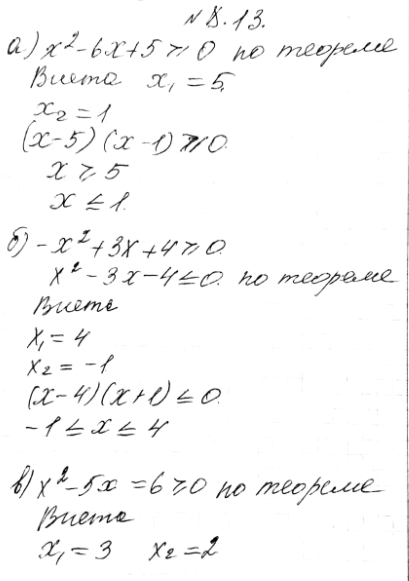 № 8.13.
а.) x² - 6x + 5 ≥ 0 по теореме
Виета x₁ = 5,
x₂ = 1
(x-5) (x-1) ≥ 0.
x ≥ 5
x ≤ 1.
б) -x² + 3x + 4 ≥ 0.
x² - 3x - 4 ≤ 0. по теореме
Виета
x₁ = 4
x₂ = -1
(x-4)(x+1) ≤ 0.
-1 ≤ x ≤ 4
в) x² - 5x = 6 ≥ 0 по теореме
Виета
x₁ = 3 x₂ = 2